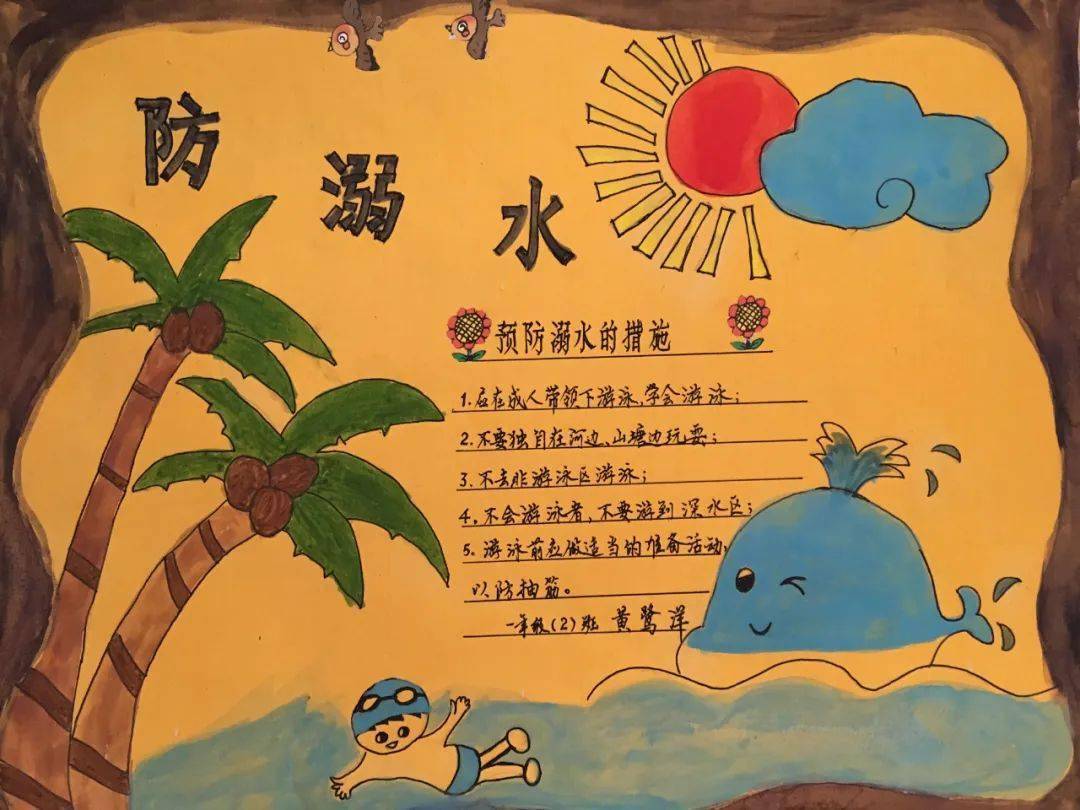 防溺水
预防溺水的措施
1.应在成人带领下游泳,学会游泳;
2.不要独自在河边、山塘边玩耍;
3.不去非游泳区游泳;
4.不会游泳者,不要游到深水区;
5.游泳前应做适当的准备活动,
以防抽筋。
一年级(2)班 黄鹭洋